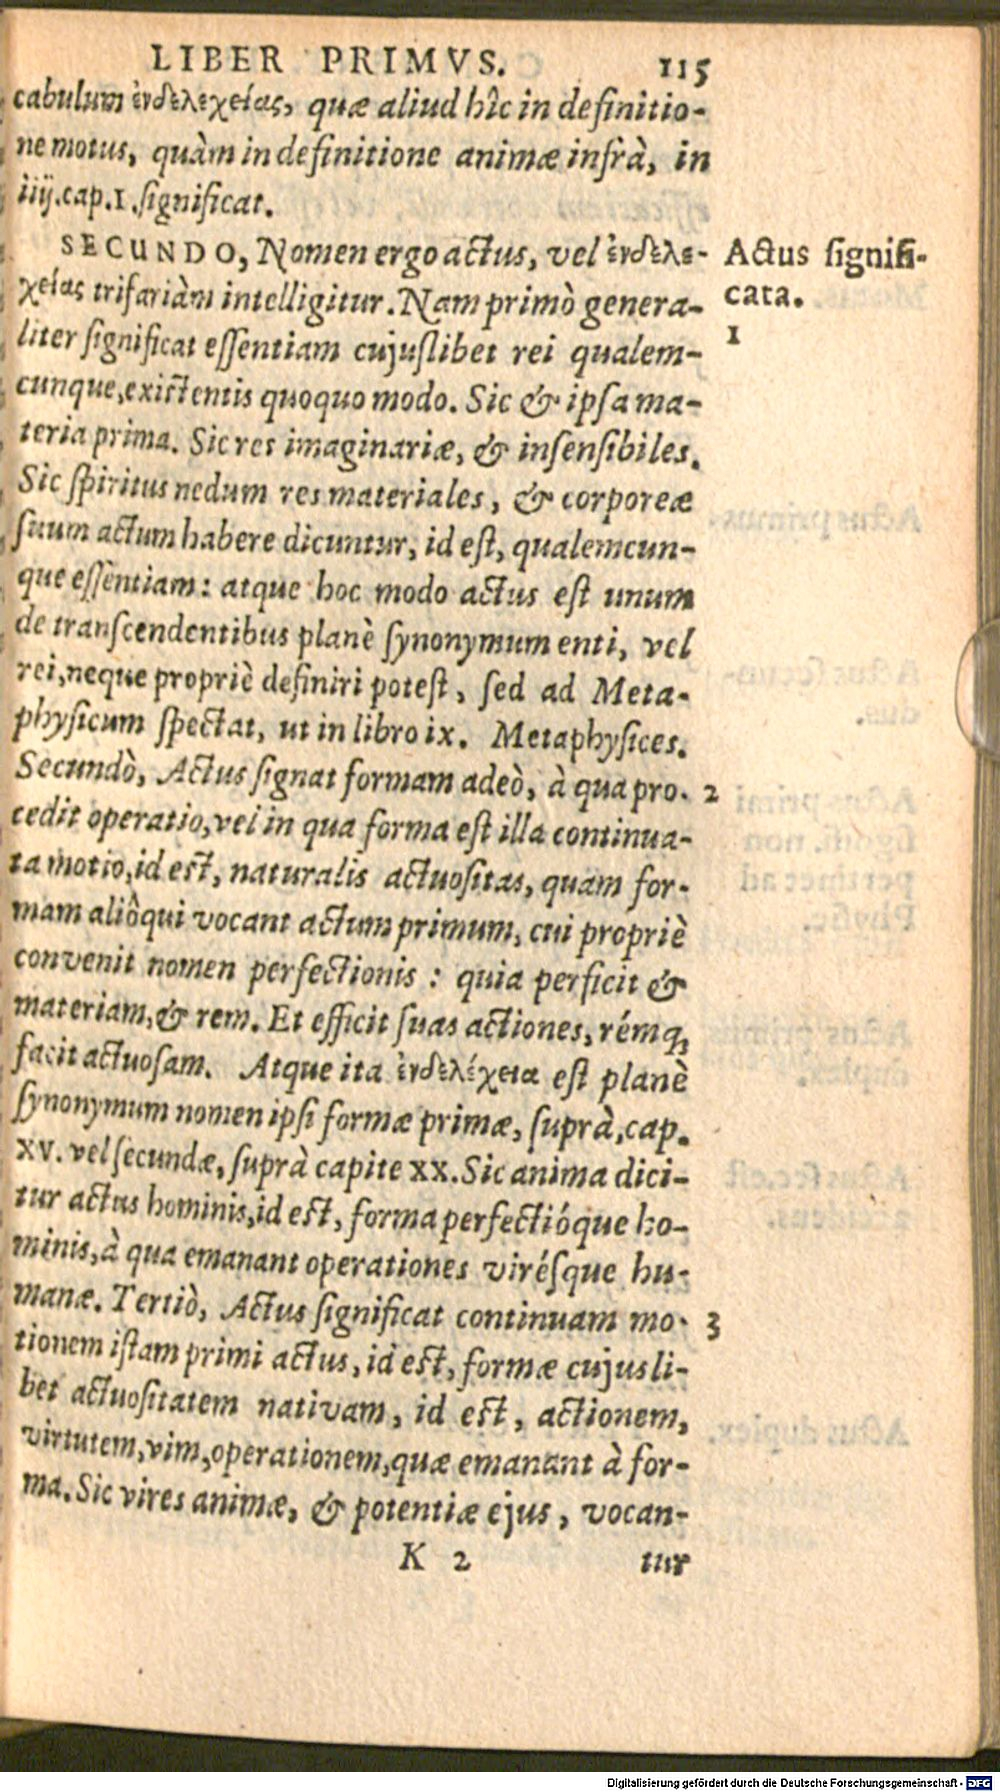 LIBER PRIMVS. 115
cabulum ἐνδελεχείας, quæ aliud hîc in definitio-
ne motus, quàm in definitione animæ infrà, in
iiij.cap.1.significat.
SECUNDO, Nomen ergo actus, vel ἐνδελε-
χείας trifariàm intelligitur. Nam primò genera-
liter significat essentiam cujuslibet rei qualem-
cunque, existentis quoquo modo. Sic & ipsa ma-
teria prima. Sic res imaginariæ, & insensibiles.
Sic spiritus nedum res materiales, & corporeæ
suum actum habere dicuntur, id est, qualemcun-
que essentiam: atque hoc modo actus est unum
de transcendentibus planè synonymum enti, vel
rei, neque propriè definiri potest, sed ad Meta-
physicum spectat, ut in libro ix. Metaphysices.
Secundò, Actus signat formam adeò, à qua pro-
cedit operatio, vel in qua forma est illa continua-
ta motio, id est, naturalis actuositas, quam for-
mam aliôqui vocant actum primum, cui propriè
convenit nomen perfectionis: quia perficit &
materiam, & rem. Et efficit suas actiones, rémq;
facit actuosam. Atque ita ἐνδελέχεια est planè
synonymum nomen ipsi formæ primæ, suprà, cap.
XV. vel secundæ, suprà capite XX. Sic anima dici-
tur actus hominis, id est, forma perfectióque ho-
minis, à qua emanant operationes virésque hu-
manæ. Tertiò, Actus significat continuam mo-
tionem istam primi actus, id est, formæ cujusli-
bet actuositatem nativam, id est, actionem,
virtutem, vim, operationem, quæ emanant à for-
ma. Sic vires animæ, & potentiæ ejus, vocan-
K 2 tur
Actus signifi-
cata.
1
2
3
Digitalisierung gefördert durch die Deutsche Forschungsgemeinschaft - DFG